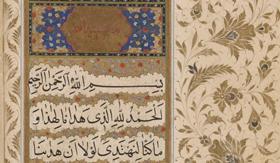 بِسْمِ اللّٰهِ الرَّحْمٰنِ الرَّحِيمِ
اَلْحَمْدُ لِلّٰهِ الَّذِي هَدَانَا لِهٰذَا وَ
مَا كُنَّا لِنَهْتَدِيَ لَوْلَا اَنْ هَدَانَا